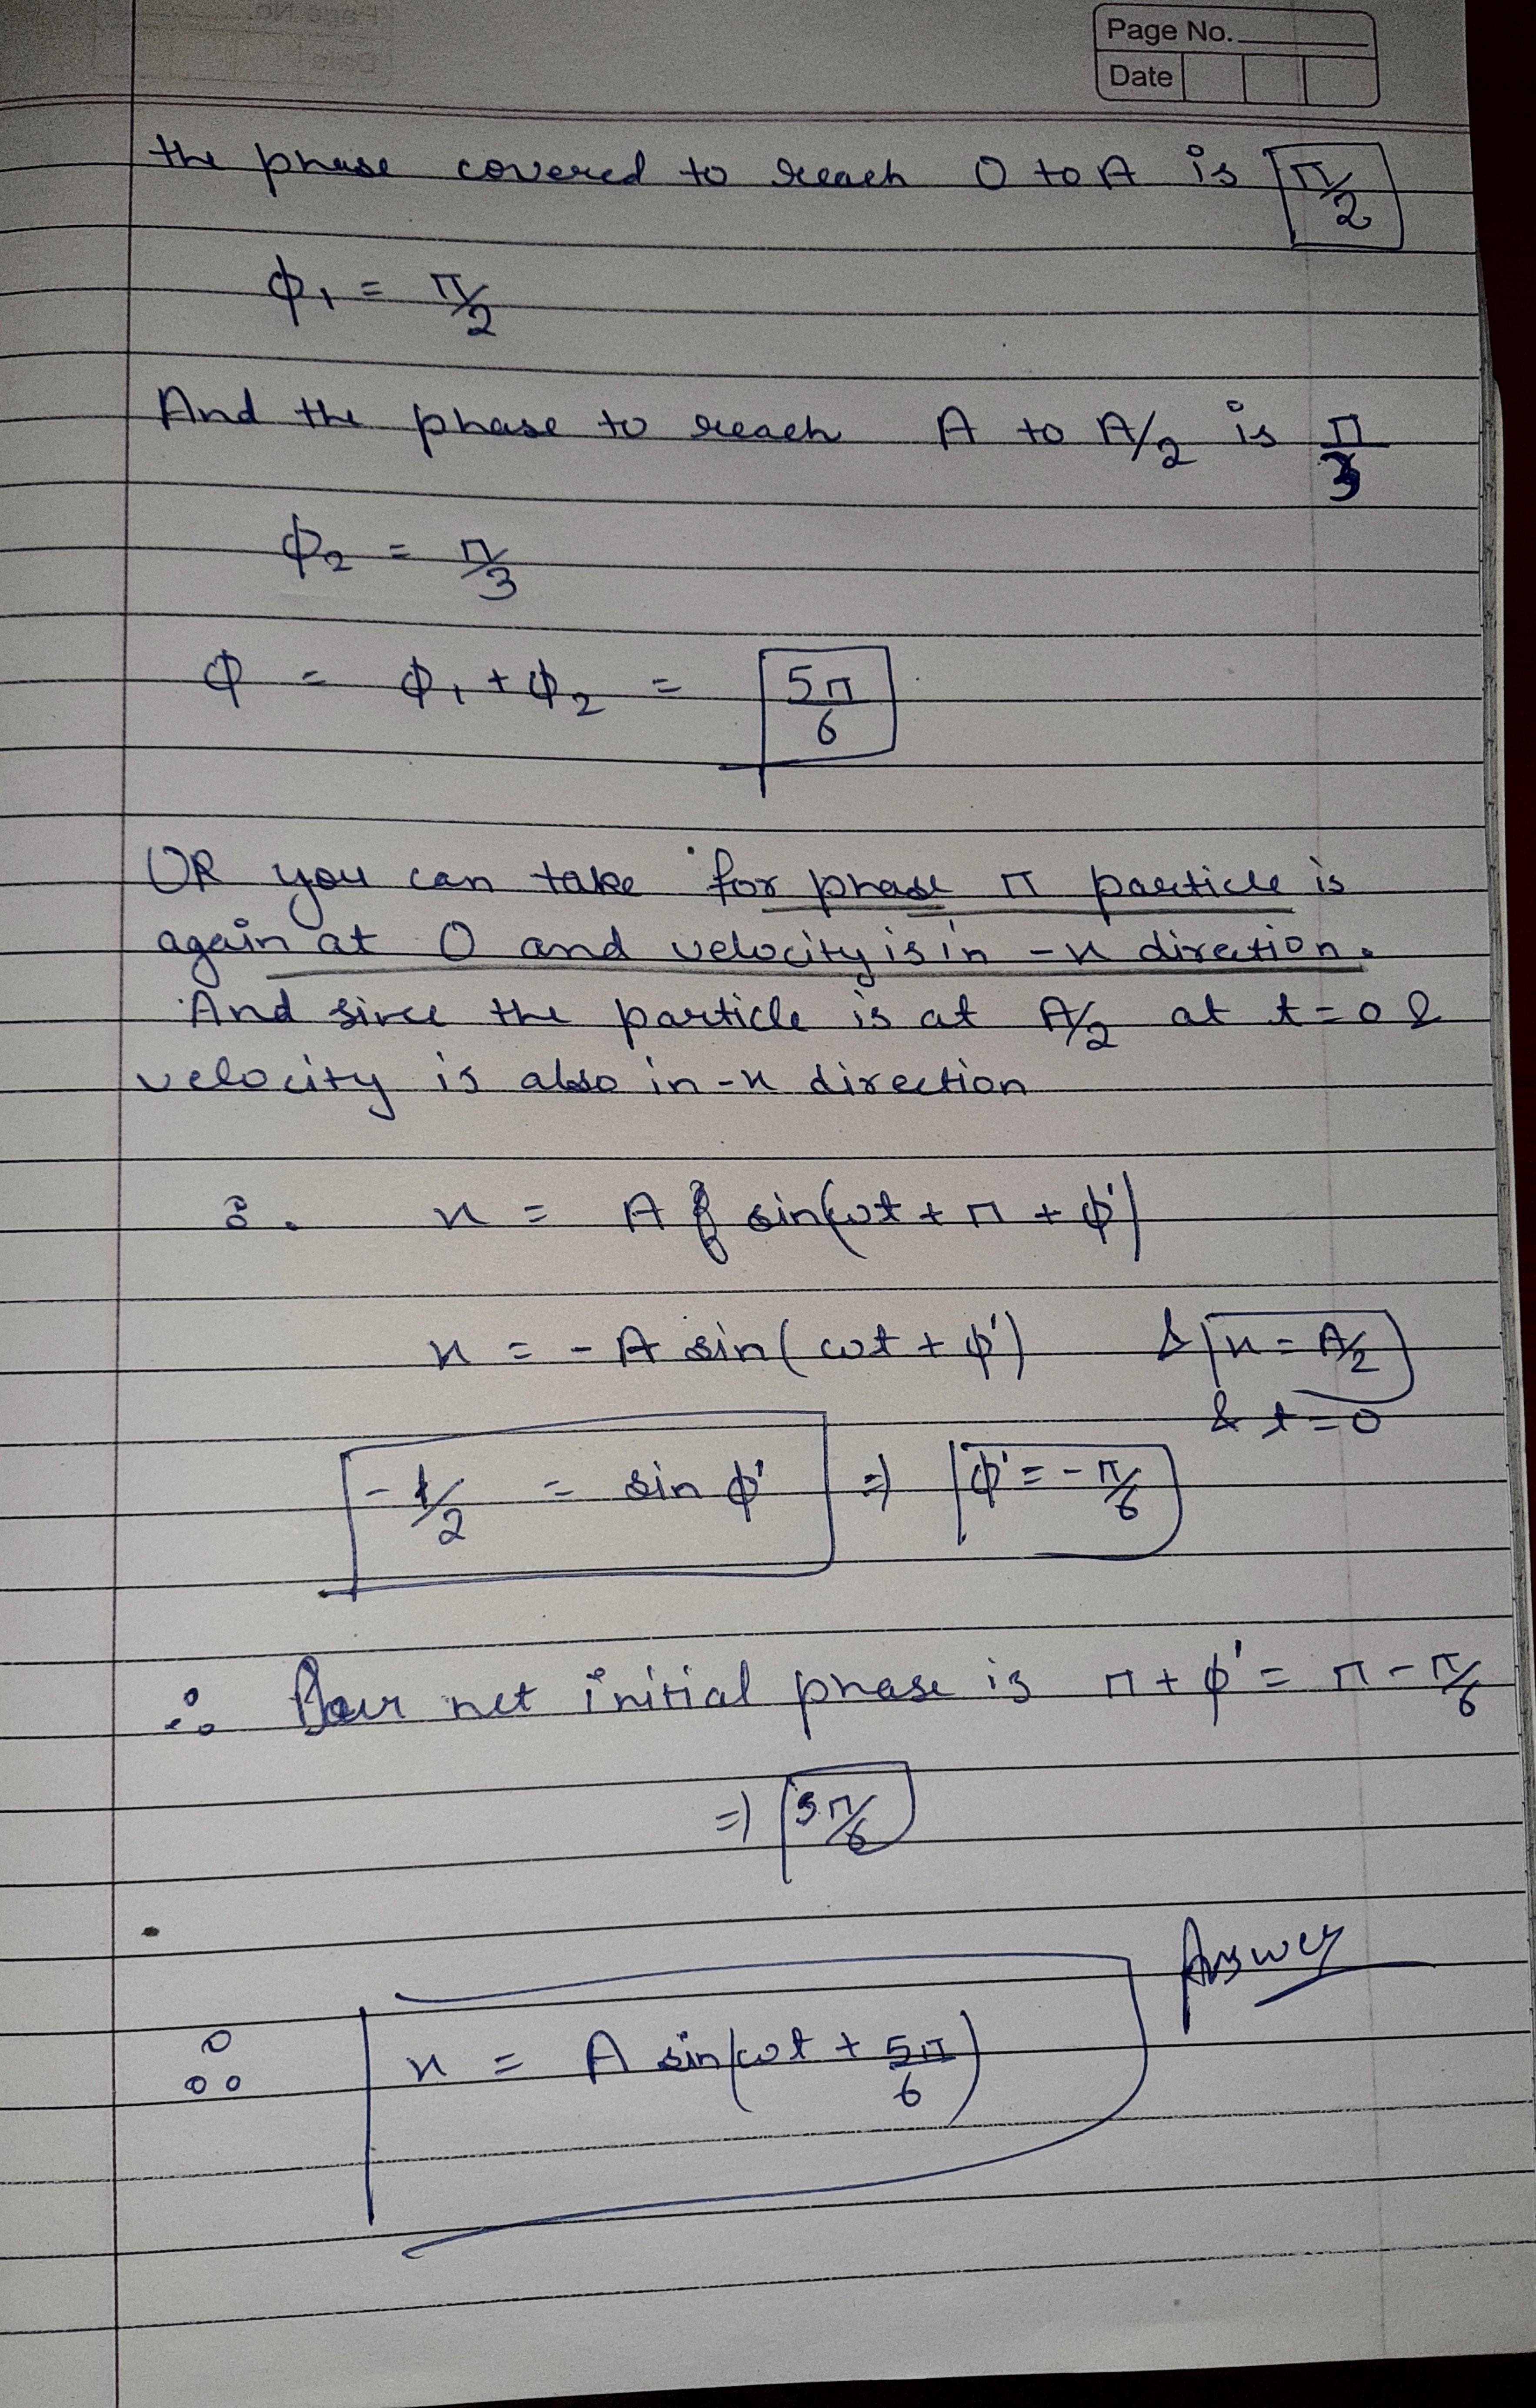 Page No.
Date
the phase covered to reach O to A is π/2
ϕ₁ = π/2
And the phase to reach A to A/2 is π/3
ϕ₂ = π/3
ϕ = ϕ₁ + ϕ₂ = 5π/6
OR you can take for phase π particle is
again at O and velocity is in -x direction.
And since the particle is at A/2 at t=0 &
velocity is also in -x direction
∴ x = A sin(ωt + π + ϕ')
x = - A sin(ωt + ϕ') & x = A/2
& t=0
-1/2 = sin ϕ' ⇒ ϕ' = -π/6
∴ net initial phase is π + ϕ' = π - π/6
⇒ 5π/6
Answer
∴ x = A sin(ωt + 5π/6)